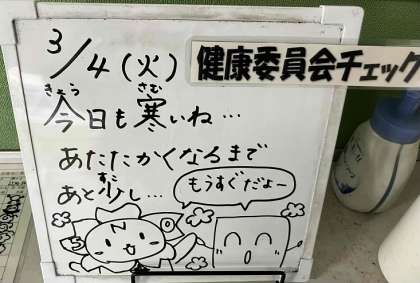 3/4(火)
健康委員会チェック
きょう さむ
今日も寒いね…
あたたかくなるまで
すこ
あと少し…
もうすぐだよー